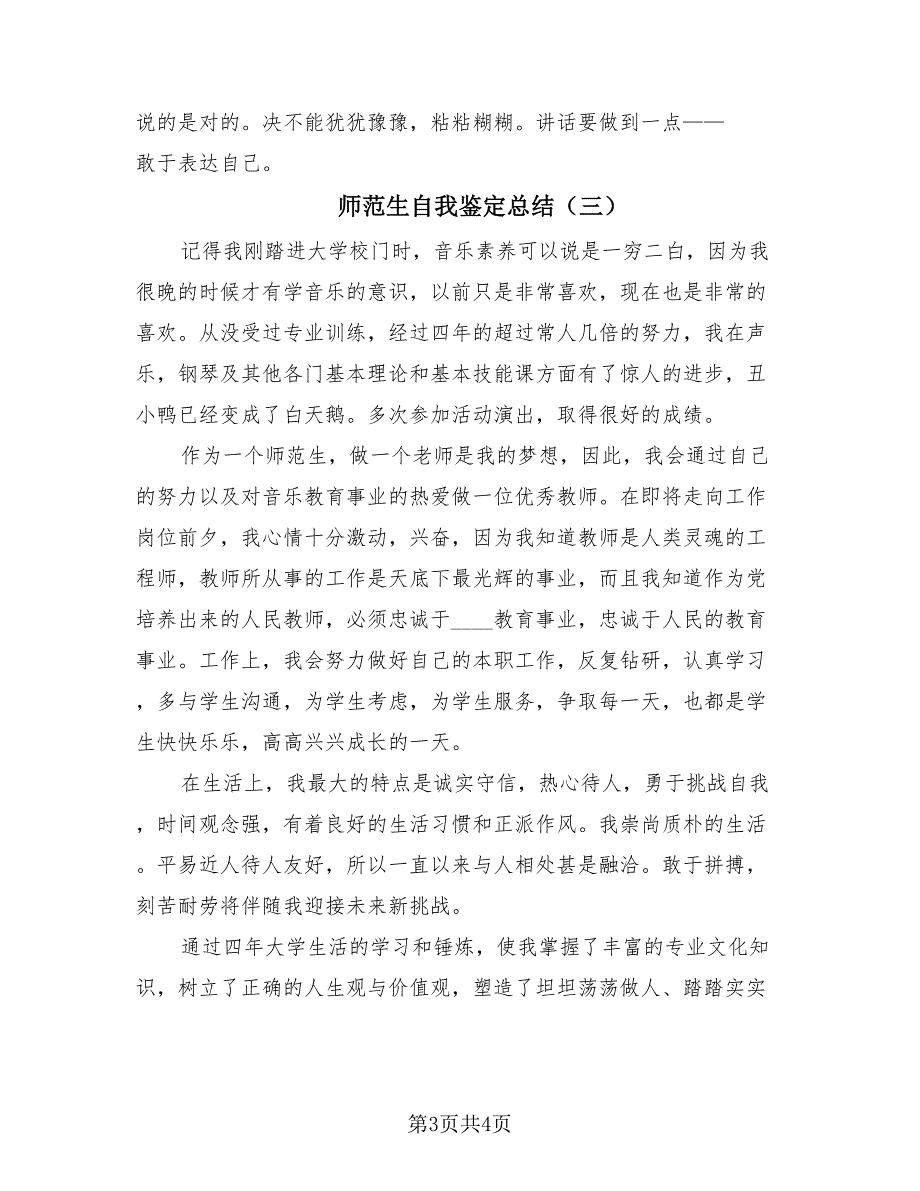 说的是对的。决不能犹犹豫豫，粘粘糊糊。讲话要做到一点——
敢于表达自己。
师范生自我鉴定总结（三）
记得我刚踏进大学校门时，音乐素养可以说是一穷二白，因为我
很晚的时候才有学音乐的意识，以前只是非常喜欢，现在也是非常的
喜欢。从没受过专业训练，经过四年的超过常人几倍的努力，我在声
乐，钢琴及其他各门基本理论和基本技能课方面有了惊人的进步，丑
小鸭已经变成了白天鹅。多次参加活动演出，取得很好的成绩。
作为一个师范生，做一个老师是我的梦想，因此，我会通过自己
的努力以及对音乐教育事业的热爱做一位优秀教师。在即将走向工作
岗位前夕，我心情十分激动，兴奋，因为我知道教师是人类灵魂的工
程师，教师所从事的工作是天底下最光辉的事业，而且我知道作为党
培养出来的人民教师，必须忠诚于____教育事业，忠诚于人民的教育
事业。工作上，我会努力做好自己的本职工作，反复钻研，认真学习
，多与学生沟通，为学生考虑，为学生服务，争取每一天，也都是学
生快快乐乐，高高兴兴成长的一天。
在生活上，我最大的特点是诚实守信，热心待人，勇于挑战自我
，时间观念强，有着良好的生活习惯和正派作风。我崇尚质朴的生活
。平易近人待人友好，所以一直以来与人相处甚是融洽。敢于拼搏，
刻苦耐劳将伴随我迎接未来新挑战。
通过四年大学生活的学习和锤炼，使我掌握了丰富的专业文化知
识，树立了正确的人生观与价值观，塑造了坦坦荡荡做人、踏踏实实
第3页共4页